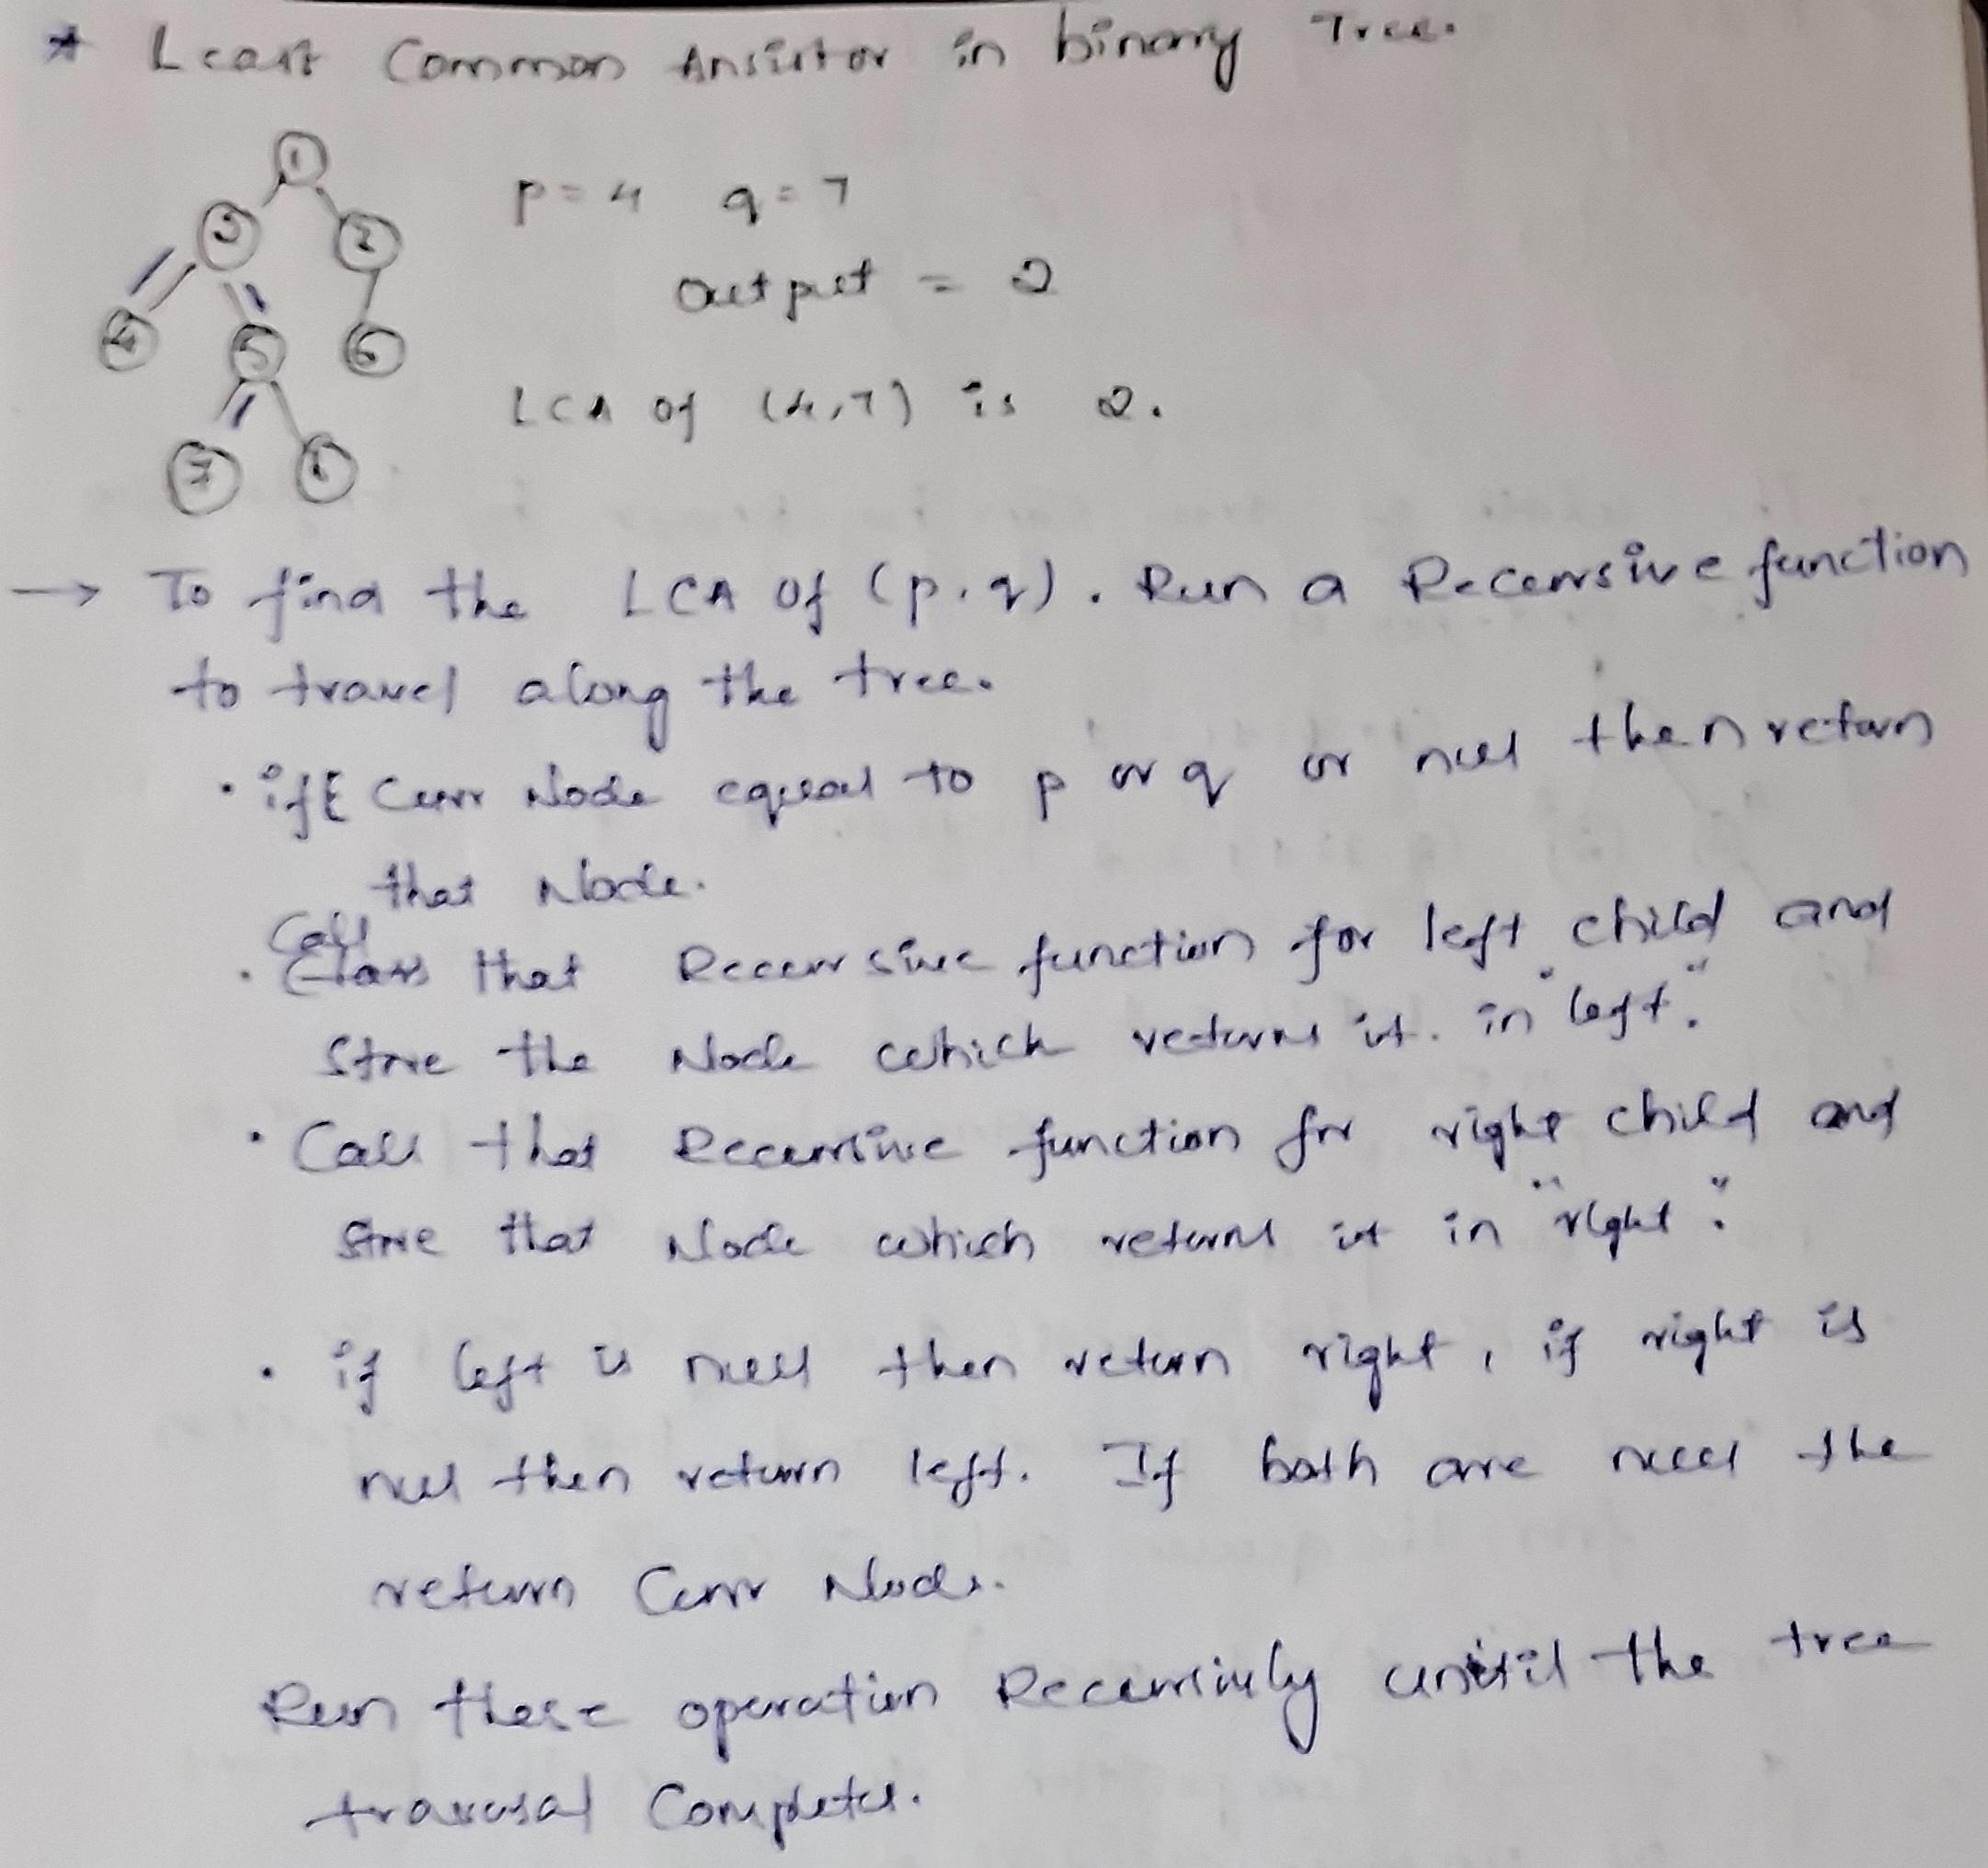 * Least Common Ansistor in binary Tree.
1
p = 4 q = 7
2
Output = 2
4 5 6
LCA of (4,7) is 2.
7
→ To find the LCA of (p,q). Run a Recursive function
to travel along the tree.
• if Curr Node equal to p or q or null then return
that Node.
Call
• that Recursive function for left child and
Store the Node which returns it. in "left".
• Call that Recursive function for right child and
Store that Node which returns it in "right".
• if left is null then return right, if right is
null then return left. If both are null the
return Curr Node.
Run these operation Recursively until the tree
traversal Completes.